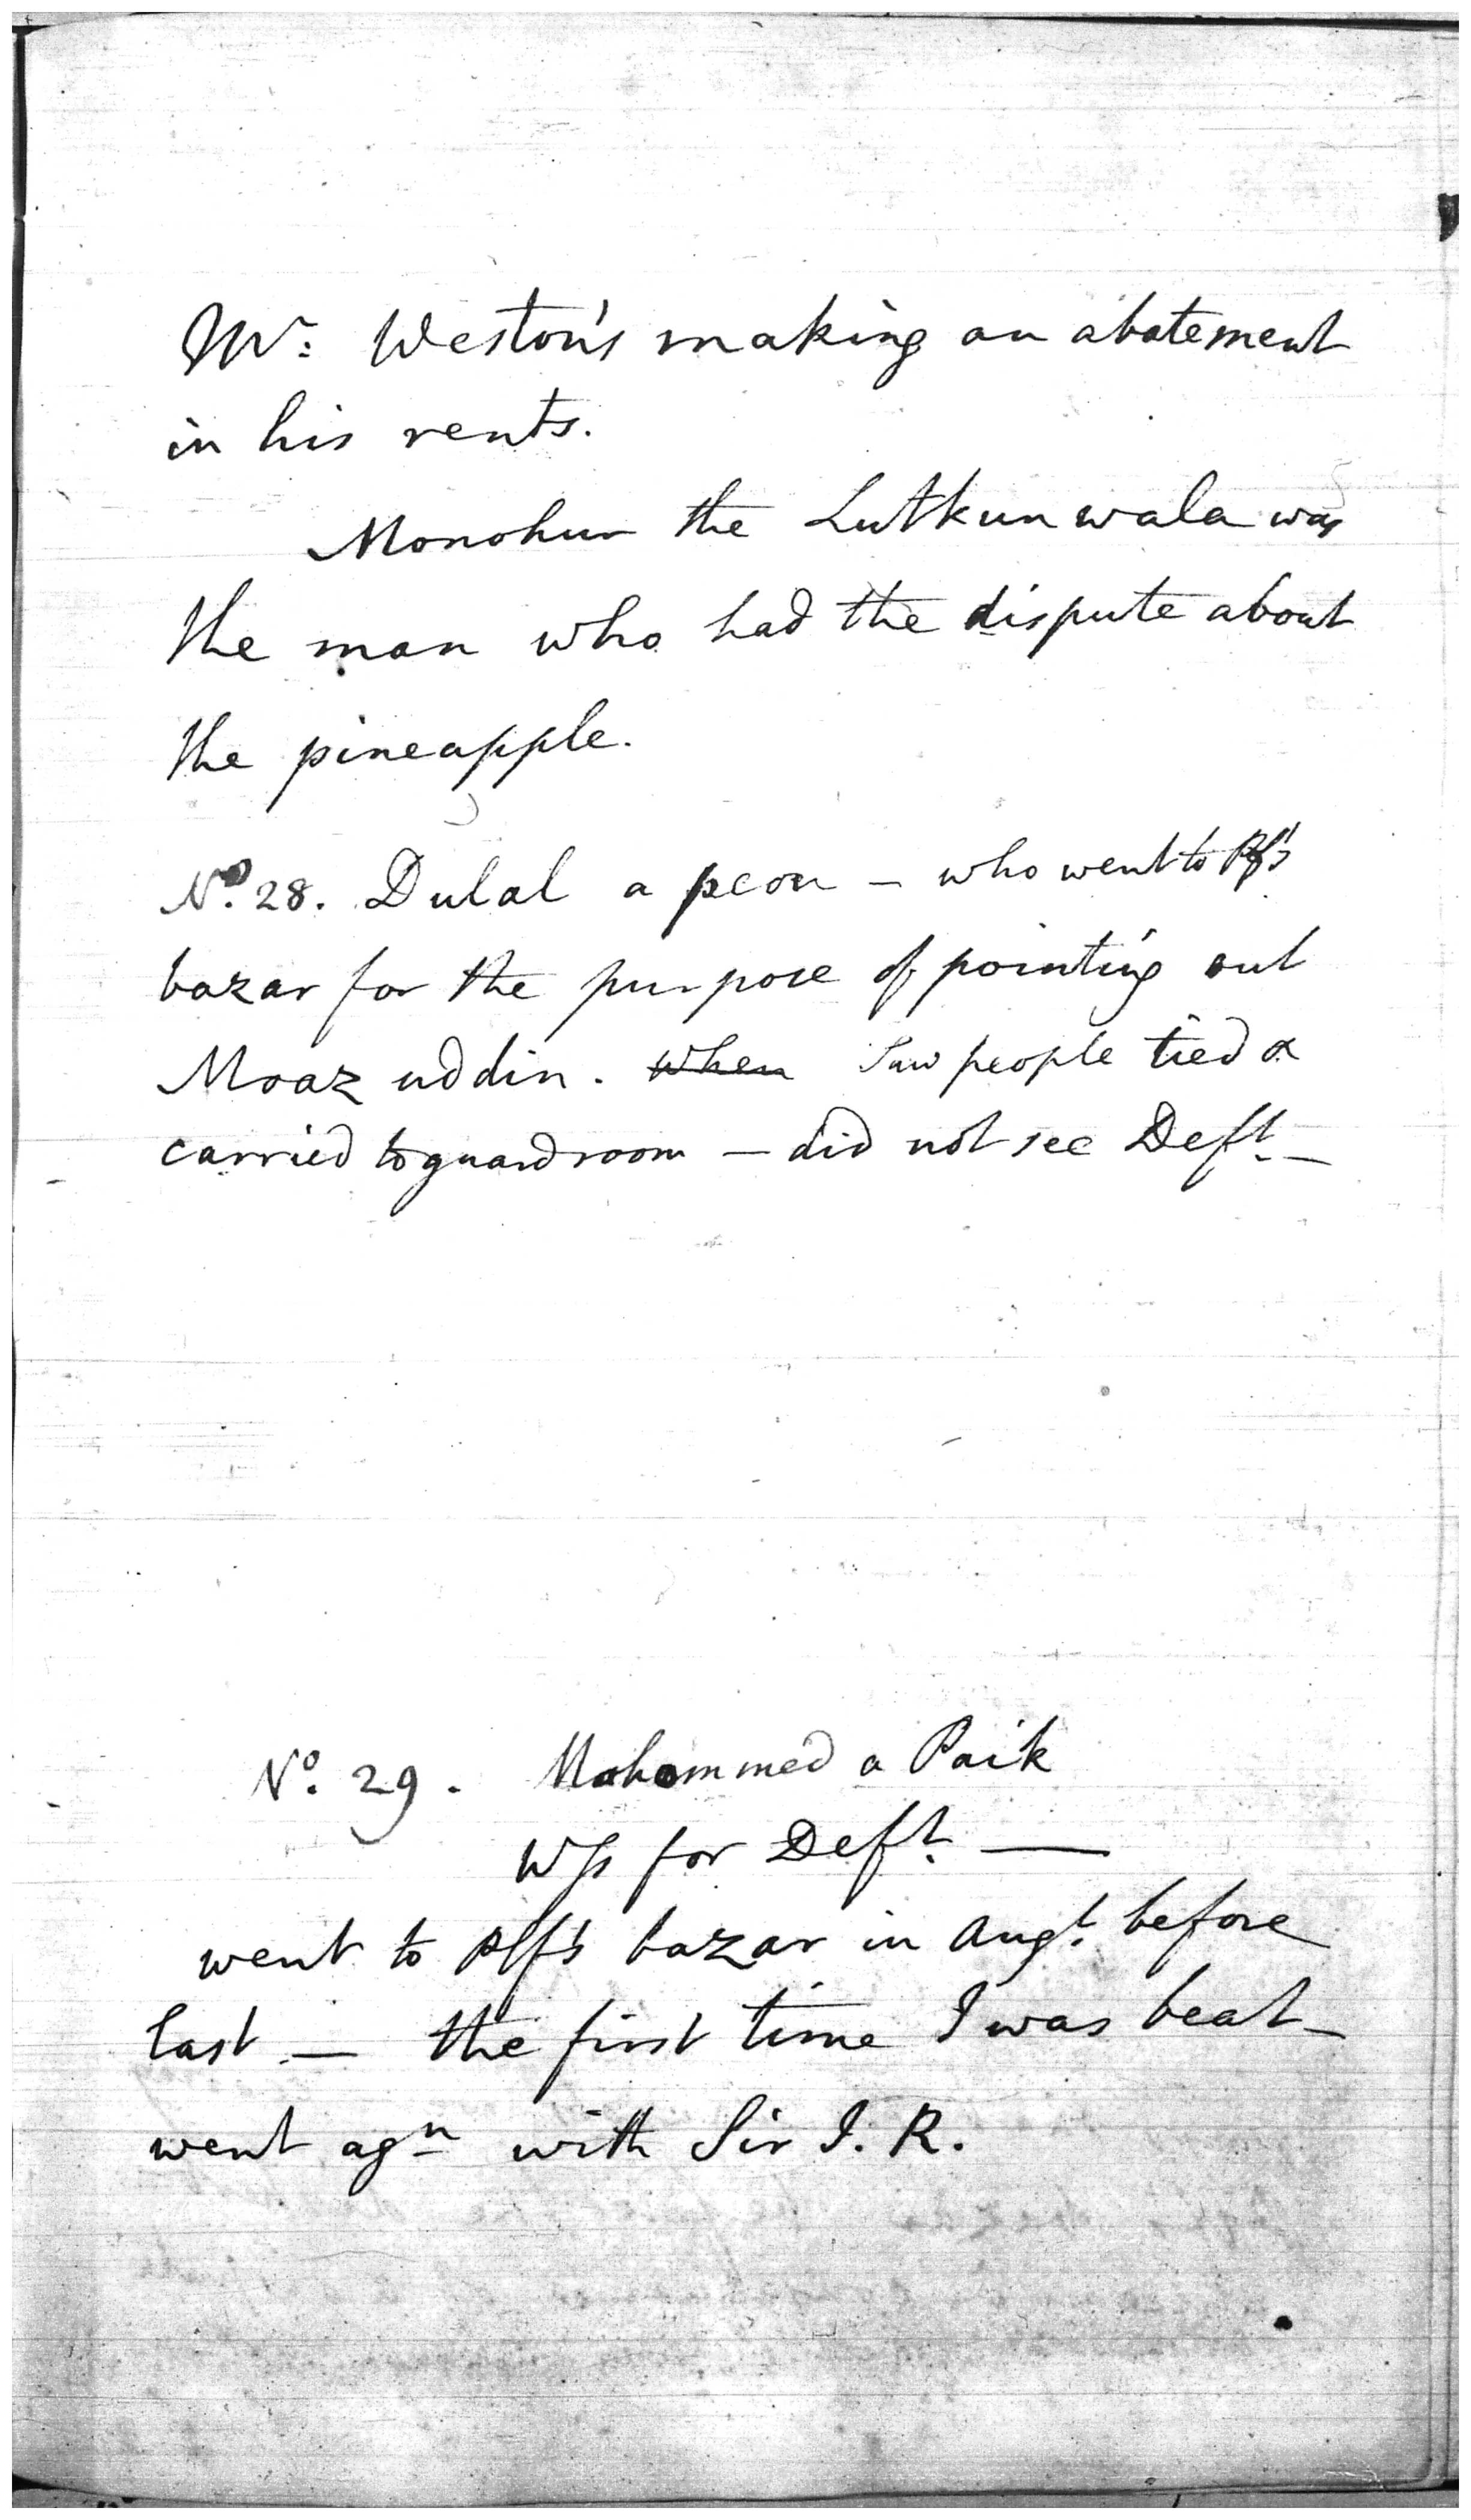 Mr: Weston's making an abatement
in his rents.
Monohur the Lutkunwala was
the man who had the dispute about
the pineapple.
No. 28. Dulal a peon – who went to Plf's
bazar for the purpose of pointing out
Moazuddin. when Saw people tied &
carried to guard room – did not see Deft. –
No. 29. Mahommed a Paik
Wss for Deft. —
went to Plf's bazar in Augt. before
last – the first time I was beat –
went agn with Sir J. R.